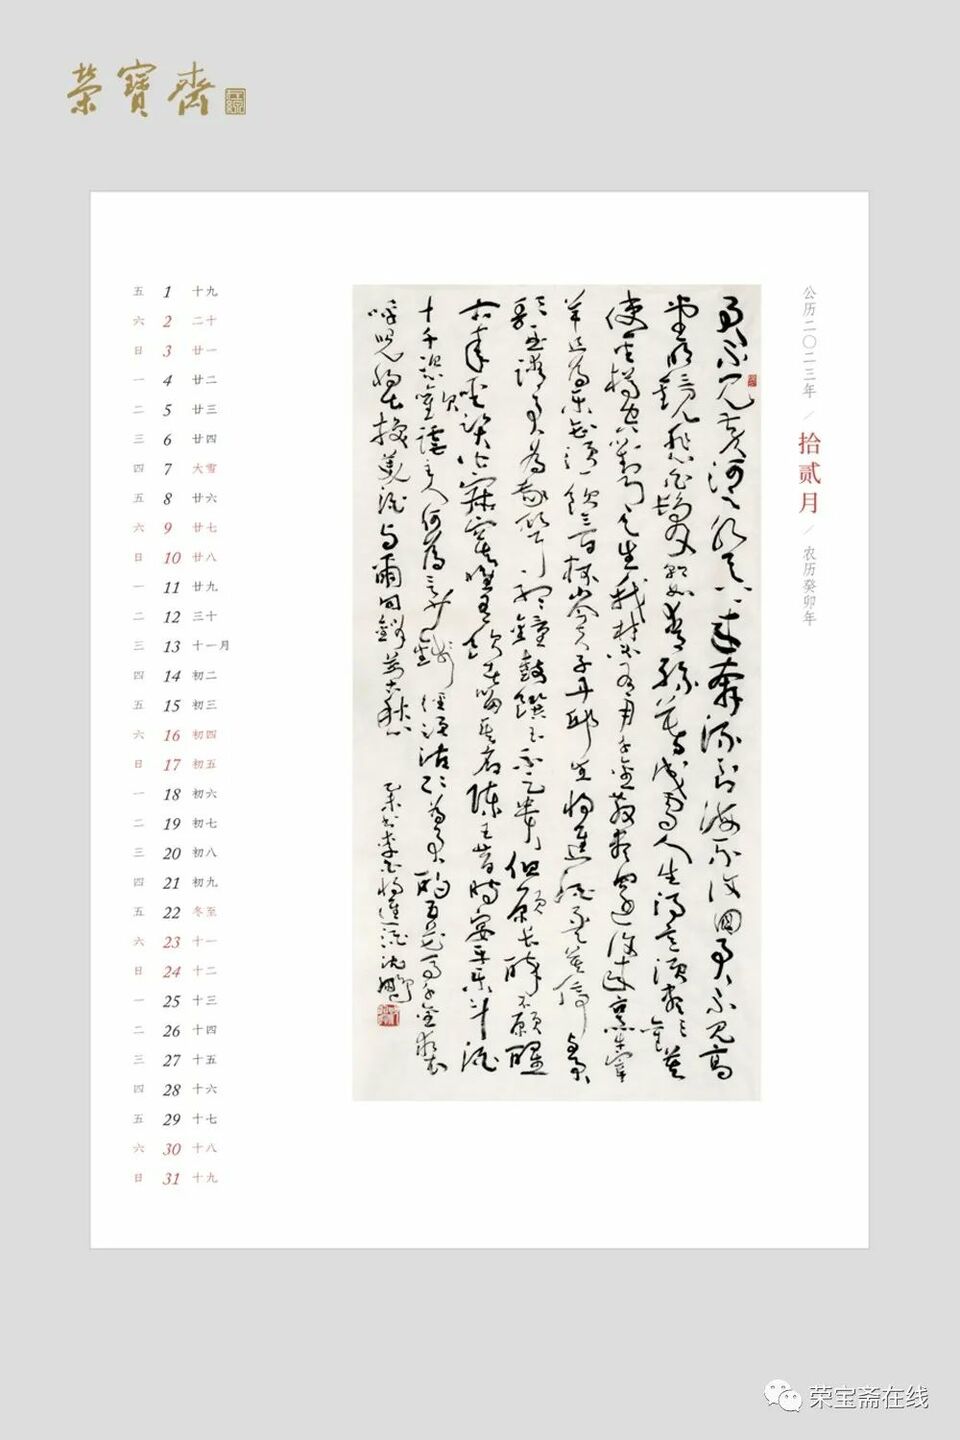 榮寶齋
公历二〇二三年 / 拾贰月 / 农历癸卯年
君不見黃河之水天上來奔流到海不復回君不見高
堂明鏡悲白髮朝如青絲暮成雪人生得意須盡歡莫
使金樽空對月天生我材必有用千金散盡還復來烹牛宰
羊且為樂會須一飲三百杯岑夫子丹邱生將進酒君莫停
歌一曲請君為我聽鐘鼓饌玉不足貴但願長醉不願醒
古來聖賢皆寂寞惟有飲者留其名陳王昔時宴平樂斗酒
十千恣歡謔主人何為言少錢徑須沽取為君酌五花馬千金裘
呼兒將出換美酒與爾同銷萬古愁 書李白將進酒 沈鵬
五 1 十九
六 2 二十
日 3 廿一
一 4 廿二
二 5 廿三
三 6 廿四
四 7 大雪
五 8 廿六
六 9 廿七
日 10 廿八
一 11 廿九
二 12 三十
三 13 十一月
四 14 初二
五 15 初三
六 16 初四
日 17 初五
一 18 初六
二 19 初七
三 20 初八
四 21 初九
五 22 冬至
六 23 十一
日 24 十二
一 25 十三
二 26 十四
三 27 十五
四 28 十六
五 29 十七
六 30 十八
日 31 十九
荣宝斋在线